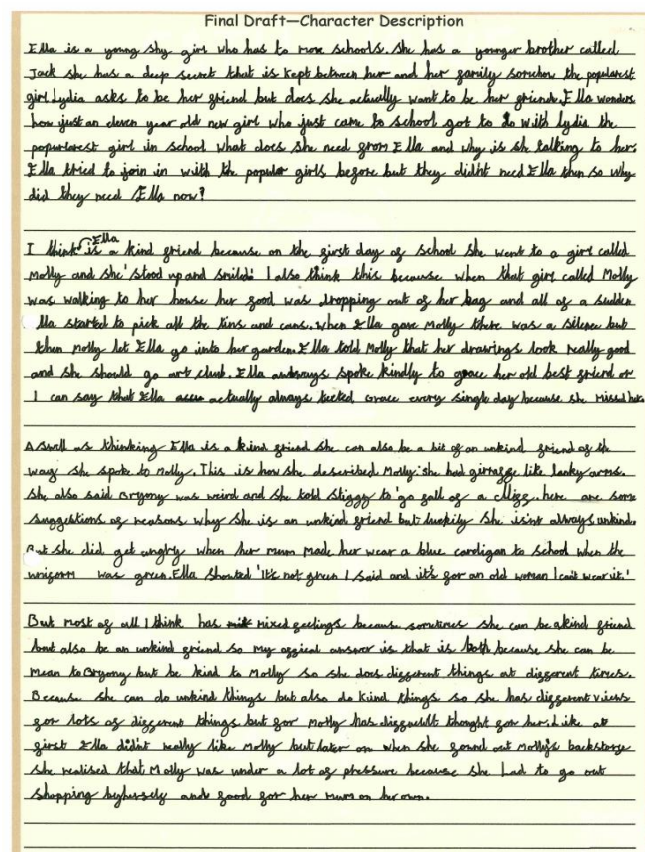 Final Draft—Character Description
Ella is a young shy girl who has to move schools. She has a younger brother called
Jack she has a deep secret that is kept between her and her family somehow the popularest
girl Lydia asks to be her friend but does she actually want to be her friend. Ella wonders
how just an eleven year old new girl who just came to school got to with Lydia the
popularest girl in school what does she need from Ella and why is sh talking to her
Ella tried to join in with the popular girls before but they didn't need Ella then so why
did they need Ella now?
I think is Ella a kind friend because on the first day of school she went to a girl called
Molly and she stood up and smiled. I also think this because when that girl called Molly
was walking to her house her food was dropping out of her bag and all of a sudden
lla started to pick all the tins and cans. When Ella gave Molly there was a silence but
then Molly let Ella go into her garden. Ella told Molly that her drawings look really good
and she should go art club. Ella always spoke kindly to grace her old best friend or
I can say that Ella actually always texted Grace every single day because she missed her.
Aswell as thinking Ella is a kind friend she can also be a bit of an unkind friend of the
way she spoke to Molly. This is how she described Molly: she had giraffe like lanky arms.
She also said Bryony was weird and she told to 'go fall of a cliff. here are some
suggestions of reasons why she is an unkind friend but luckily she isint always unkind.
But she did get angry when her mum made her wear a blue cardigan to school when the
uniform was green. Ella shouted 'It's not green I said and it's for an old woman I can't wear it.'
But most of all I think has mixed feelings because sometimes she can be a kind friend
but also be an unkind friend so my offical answer is that is both because she can be
mean to Bryony but be kind to Molly so she does different things at different times.
Because she can do unkind things but also do kind things so she has different views
for lots of different things but for Molly has thought for her. Like at
first Ella didn't really like Molly but later on when she found out Molly's backstory
she realised that Molly was under a lot of pressure because she had to go out
shopping and food for her mum on her own.